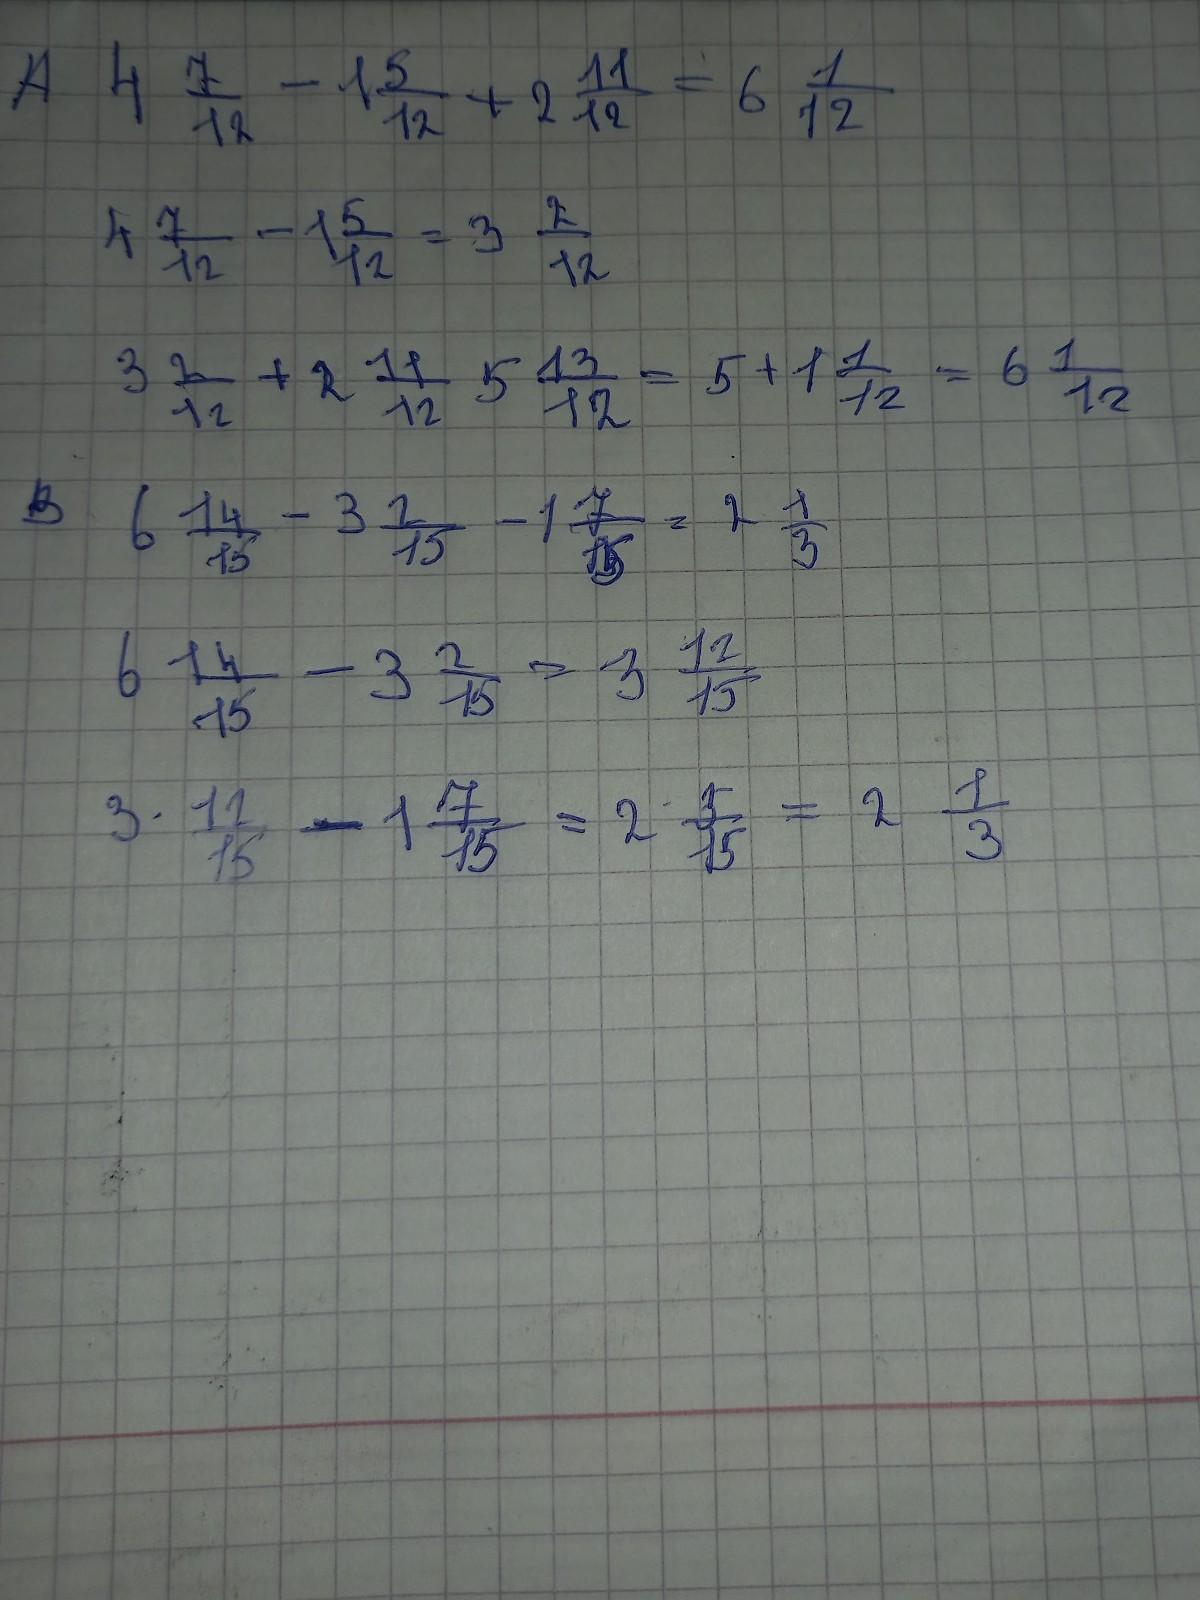 А 4 7/12 - 1 5/12 + 2 11/12 = 6 1/12
4 7/12 - 1 5/12 = 3 2/12
3 2/12 + 2 11/12 5 13/12 = 5 + 1 1/12 = 6 1/12
В 6 14/15 - 3 2/15 - 1 7/15 = 2 1/3
6 14/15 - 3 2/15 = 3 12/15
3 · 12/15 - 1 7/15 = 2 5/15 = 2 1/3